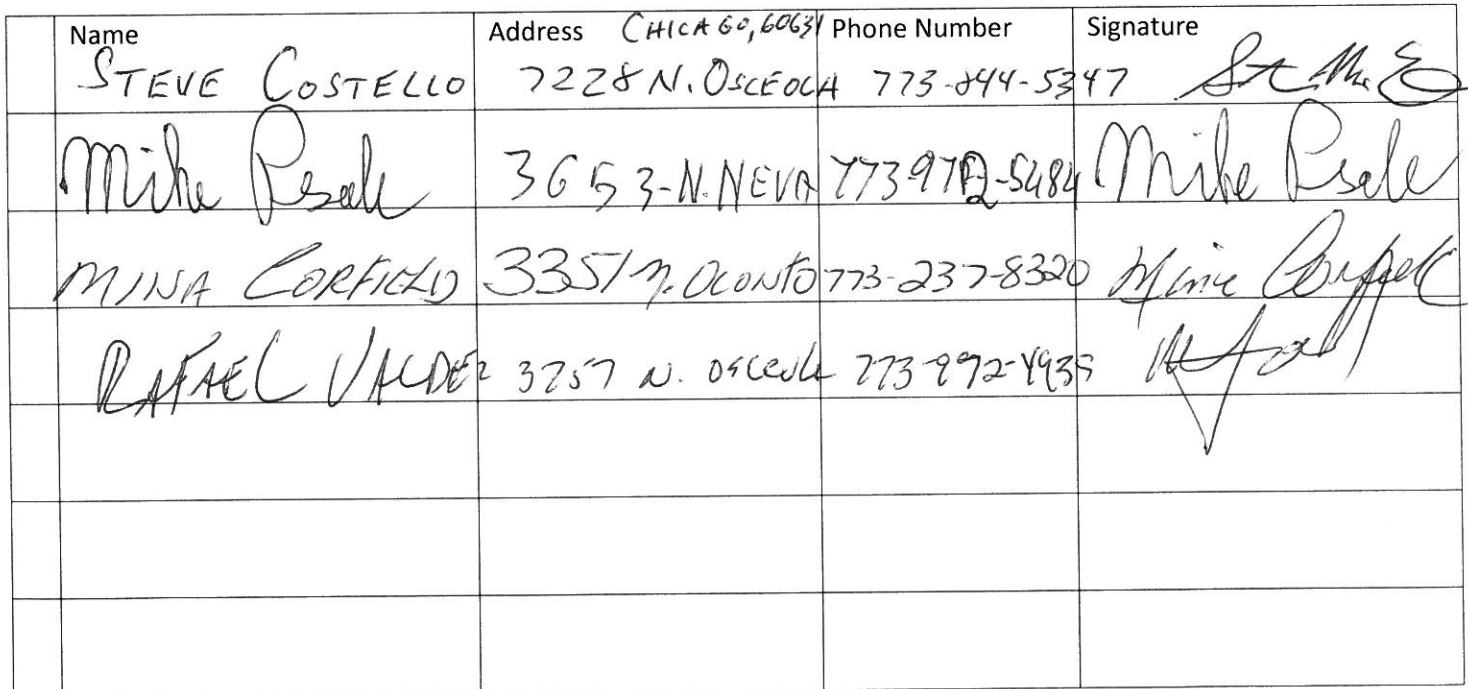 Name Address CHICAGO, 60631 Phone Number Signature
STEVE COSTELLO 7228 N. OSCEOLA 773-844-5347
Mike 3653-N. NEVA 773 972-5484 Mike
MINA CORFIELD 3351 N. OCONTO 773-237-8320
RAFAEL VALDEZ 3757 N. OSCEOLA 773-992-4935